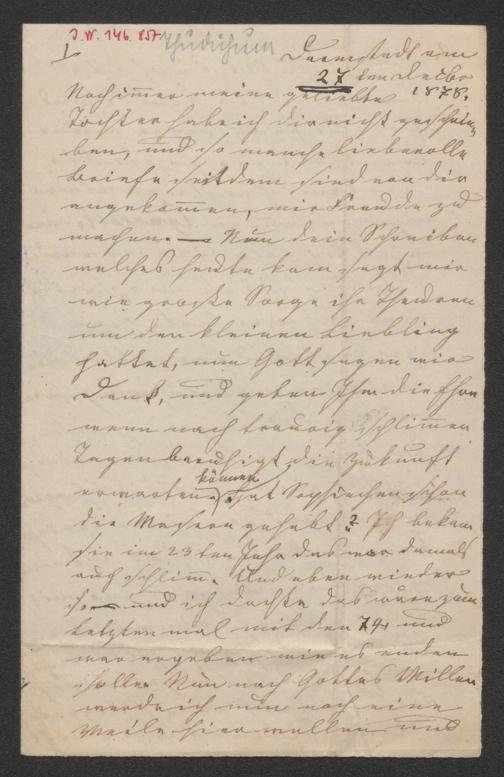 J. N. 146.857
Thudichum
I
Darmstadt am
27 ten Decbr
1878.
Noch immer meine geliebte
Tochter habe ich dir nicht geschrie-
ben, und so manche liebevolle
Briefe seitdem sind von dir
angekommen, mir Freude zu
machen. — Nun dein Schreiben
welches heute kam sagt mir
wie große Sorge ihr Theuren
um den kleinen Liebling
hattet, nun Gott sagen wir
Dank, und geben Ihm die Ehre
wenn nach traurig schlimen
Tagen beruhigt die Zukunft
können
erwarten. hat Sophiechen schon
die Masern gehabt? Ich bekam
sie im 23 ten Jahr das war damals
auch schlimm. Und eben wieder
und ich dachte das wäre zum
letzten mal mit den 74 und
war ergeben wie es enden
solle. Nun nach Gottes Willen
werde ich nun noch eine
Weile hier wallen und